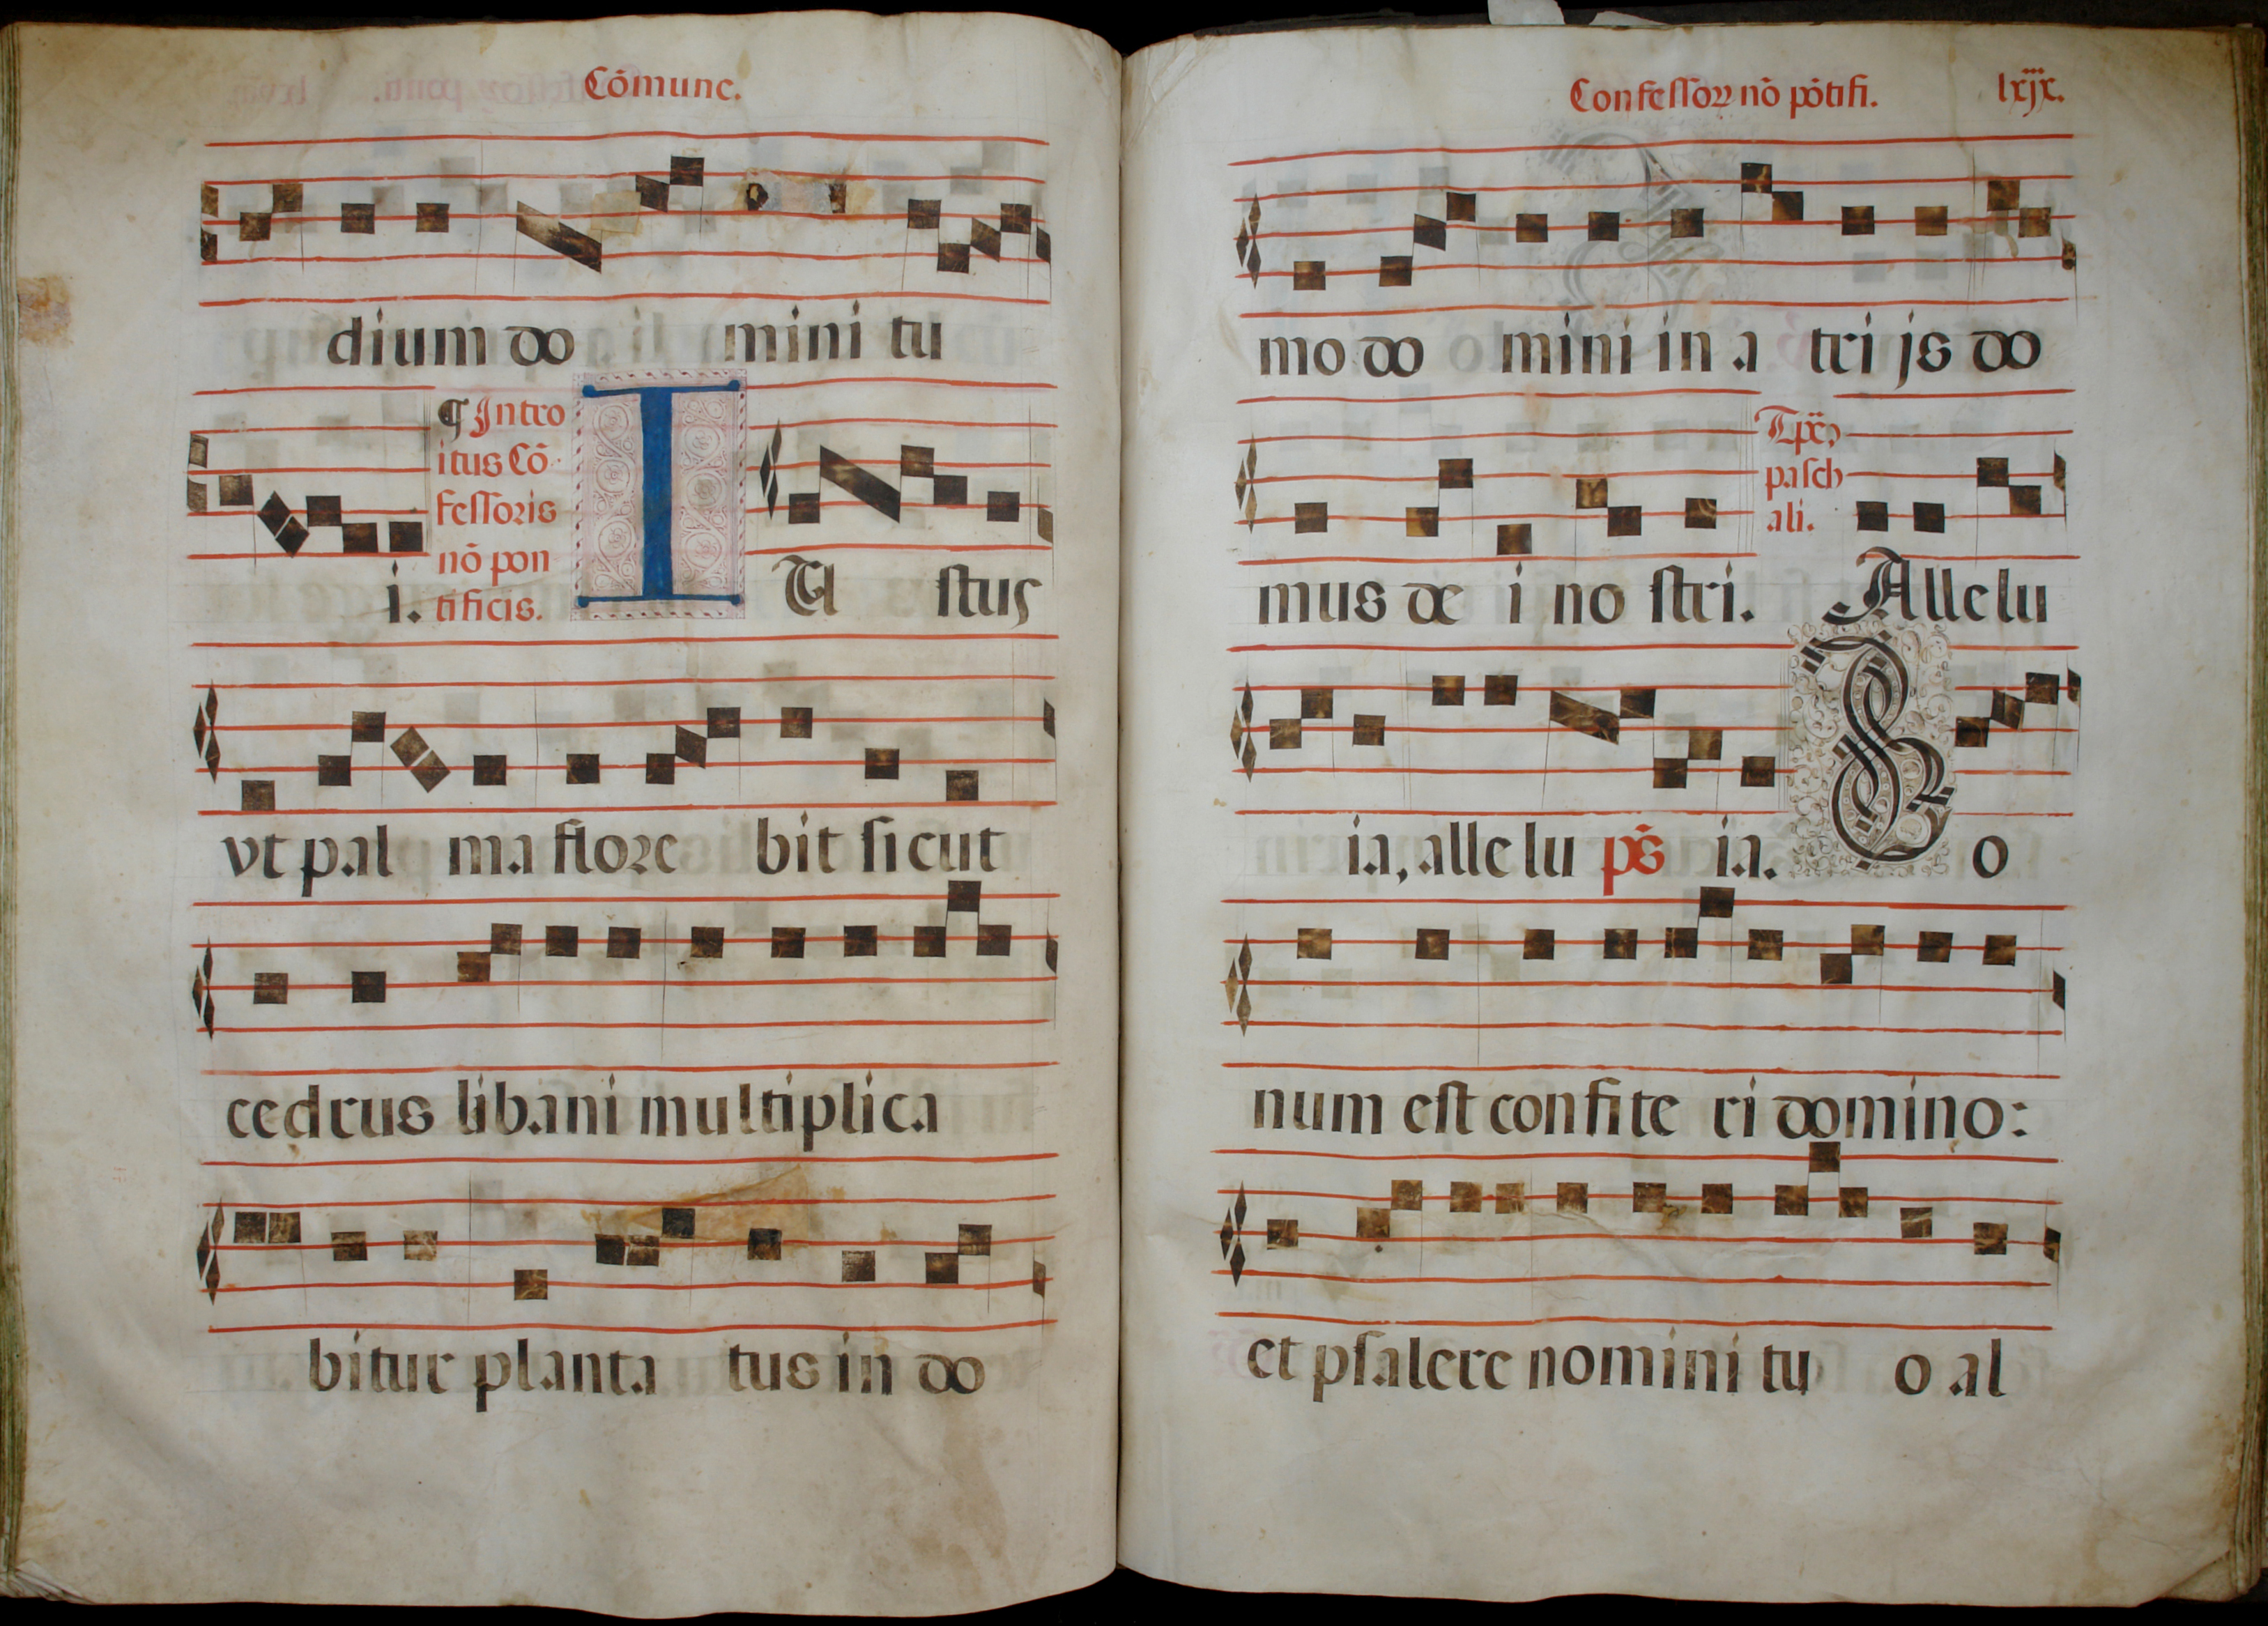 Cõmune.
dium do mini tu
i.
¶ Intro
itus Cõ
feſſoris
nõ pon
tificis.
I U ſtus
vt pal ma flore bit ſicut
cedrus libani multiplica
bitur planta tus in do
Confeſſoꝝ nõ põtifi. lxjx.
mo do mini in a tri js do
mus de i no ſtri.
paſch
ali.
Allelu
ia, allelu ps̃ ia. B o
num eſt confite ri domino:
et pſalere nomini tu o al